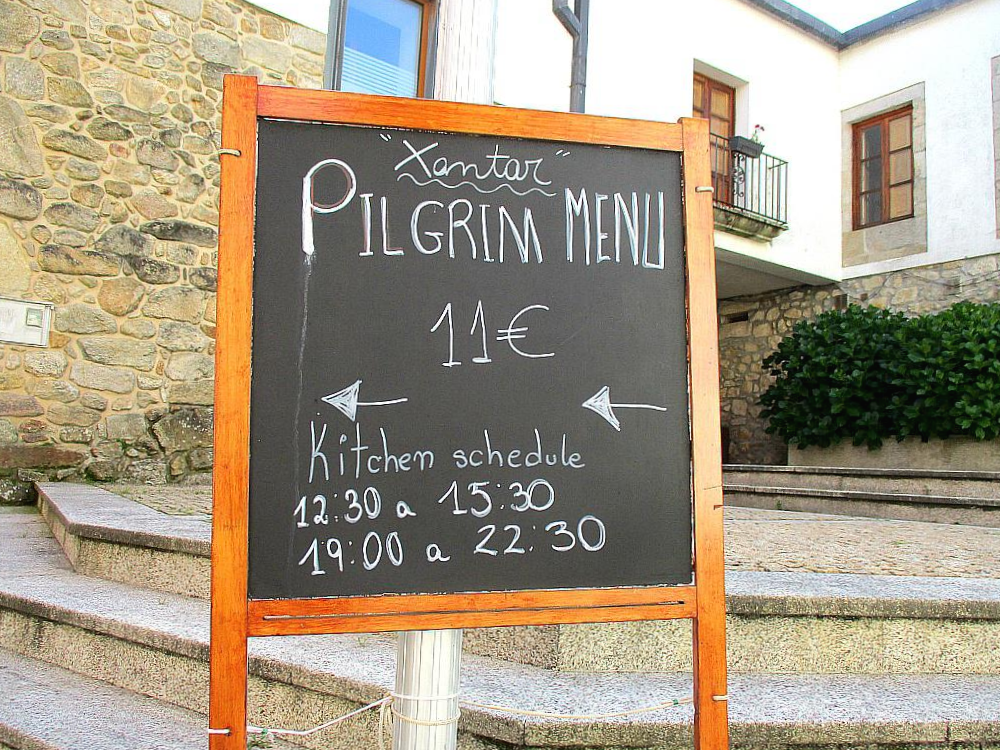 "Xantar"
PILGRIM MENU
11€
Kitchen schedule
12:30 a 15:30
19:00 a 22:30